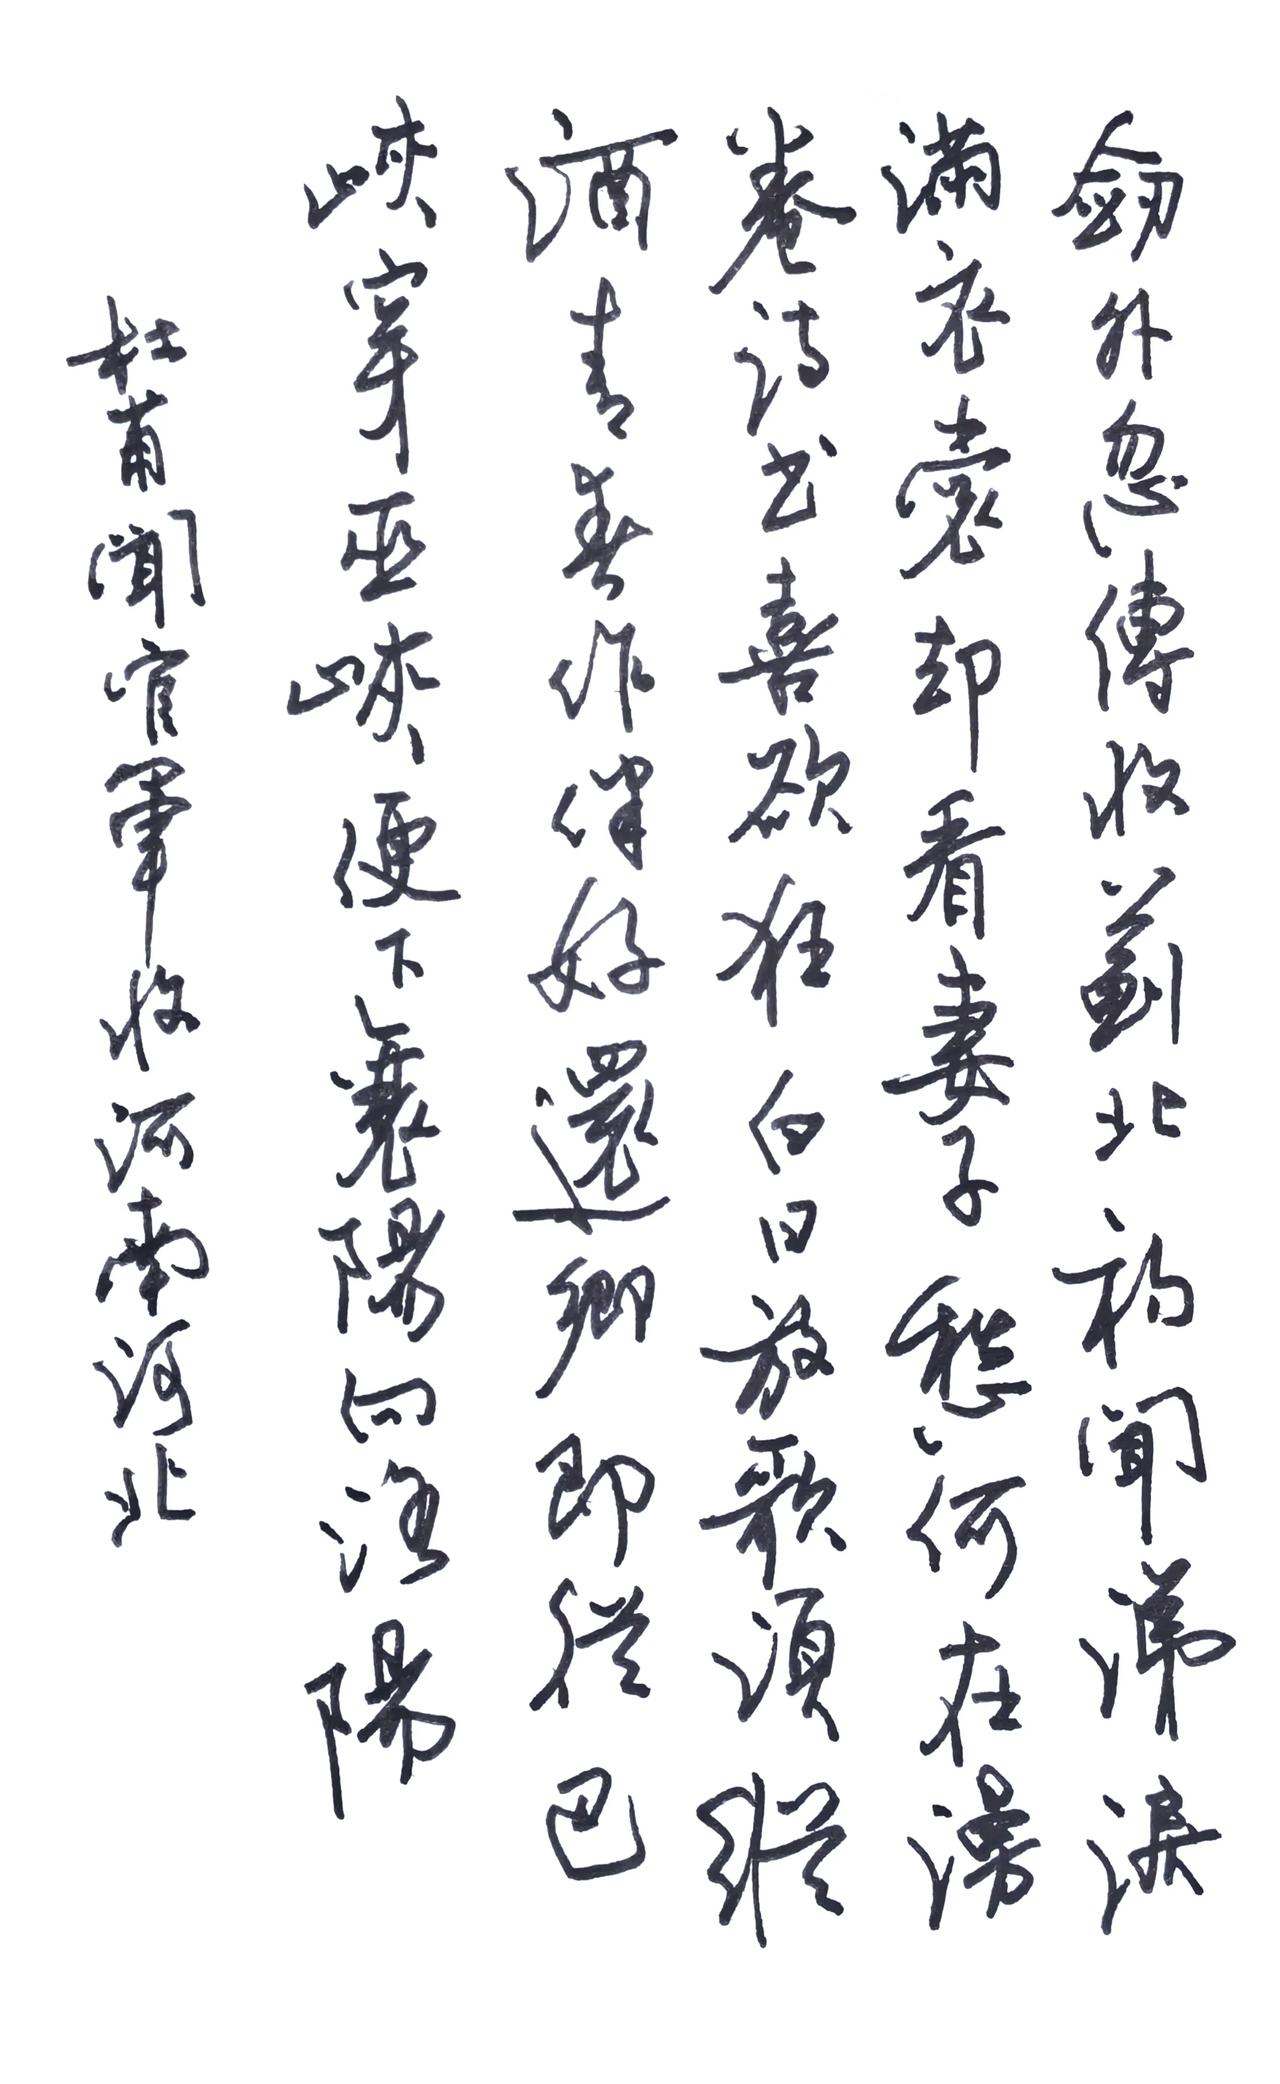 劒外忽傳收薊北初聞涕淚
滿衣裳却看妻子愁何在漫
卷诗书喜欲狂白日放歌須縱
酒青春作伴好還鄉即從巴
峽穿巫峽便下襄陽向洛陽
杜甫聞官軍收河南河北